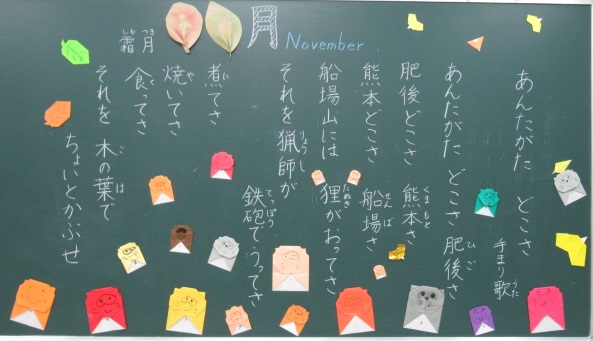 月 November
霜月
しも つき
あんたがた どこさ
手まり歌
うた
あんたがた どこさ 肥後さ
ひご
肥後どこさ 熊本さ
くま もと
熊本どこさ 船場さ
せん ば
船場山には 狸がおってさ
たぬき
それを猟師が 鉄砲でうってさ
りょうし てっぽう
煮てさ
に
焼いてさ
や
食ってさ
く
それを 木の葉で
こ は
ちょいとかぶせ